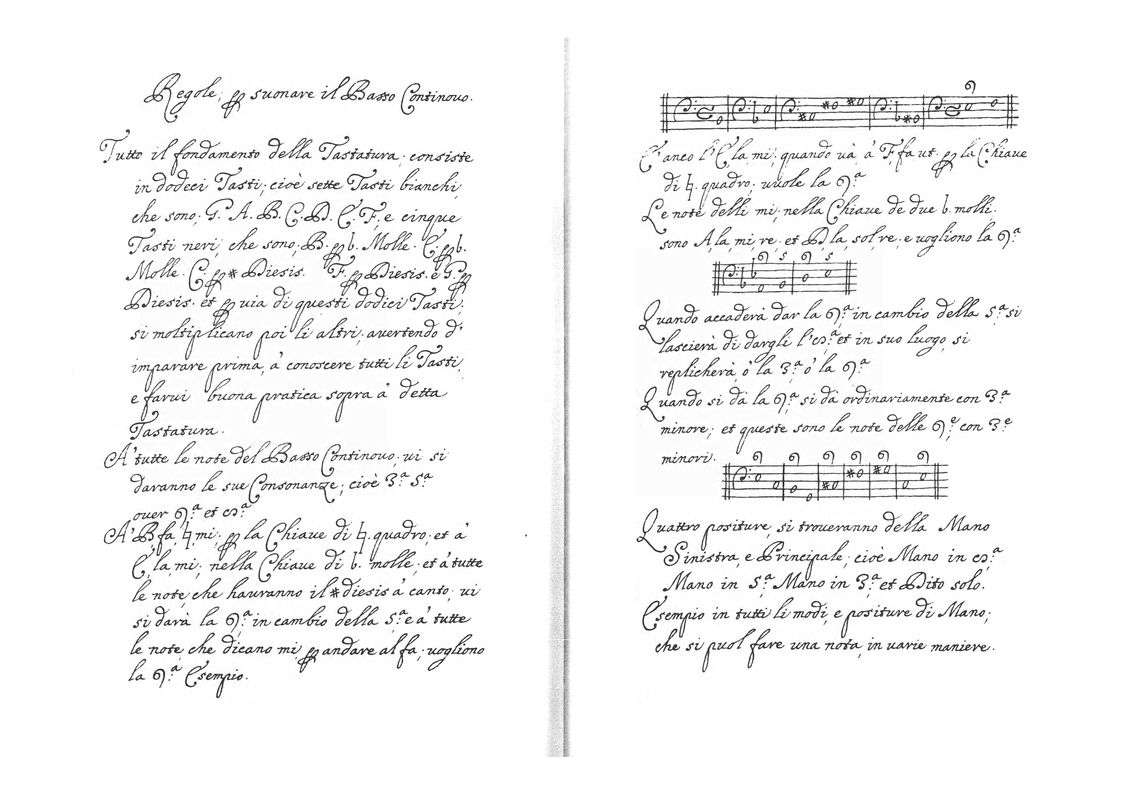 Regole, ꝑ suonare il Basso Continovo.
Tutto il fondamento della Tastatura; consiste
in dodeci Tasti; cioè sette Tasti bianchi
che sono; G. A. B. C. D. E. F, e cinque
Tasti neri, che sono, B. ꝑ b. Molle. E. ꝑ b.
Molle. C. ꝑ # Diesis. F. ꝑ Diesis. e G. ꝑ
Diesis. et ꝑ via di questi dodici Tasti,
si moltiplicano poi li altri, avertendo d'
imparare prima, à conoscere tutti li Tasti,
e farui buona pratica sopra à detta
Tastatura.
A' tutte le note del Basso Continovo, vi si
daranno le sue Consonanze; cioè 3.ª 5.ª
ouer 6.ª et 8.ª
A' B fa ♮ mi, ꝑ la Chiaue di ♮ quadro, et à
E, la mi, nella Chiaue di b. molle, et à tutte
le note, che hauranno il # diesis à canto, vi
si darà la 6.ª in cambio della 5.ª e à tutte
le note che dicano mi ꝑ andare al fa, uogliono
la 6.ª Esempio.
6
E' anco l'E la mi, quando uà à F, fa ut. ꝑ la Chiaue
di ♮ quadro, uuole la 6.ª
Le note delli mi, nella Chiaue de due b. molli.
sono A, la, mi, re, et D, la, sol re, e uogliono la 6.ª
6 5 6 5
Quando accaderà dar la 6.ª in cambio della 5.ª si
lascierà di dargli l'8.ª et in suo luogo, si
replicherà ò la 3.ª ò la 6.ª
Quando si dà la 6.ª si dà ordinariamente con 3.ª
minore; et queste sono le note delle 6.e con 3.e
minori.
6 6 6 6 6 6
Quattro positure, si troueranno della Mano
Sinistra, e Principale; cioè Mano in 8.ª
Mano in 5.ª Mano in 3.ª et Dito solo.
Esempio in tutti li modi, e positure di Mano;
che si puol fare una nota, in uarie maniere.